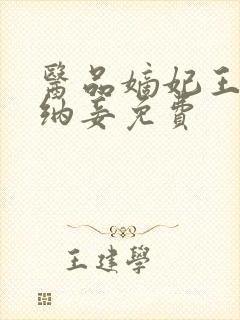 醫品嫡妃王
納妾免費
王建學